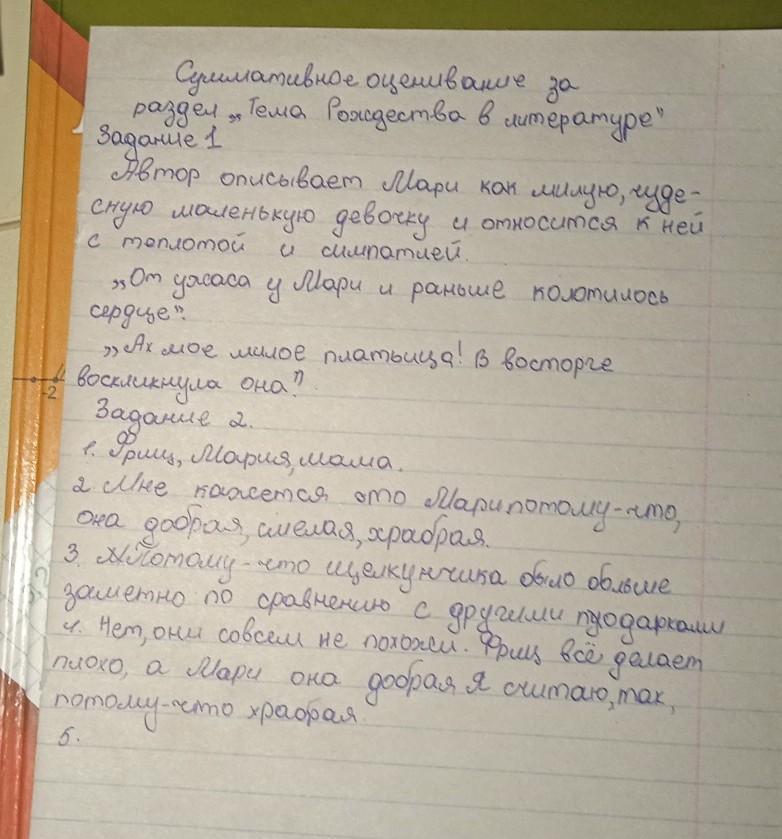 Суммативное оценивание за
раздел „Тема Рождества в литературе"
Задание 1
Автор описывает Мари как милую, чуде-
сную маленькую девочку и относится к ней
с теплотой и симпатией.
„От ужаса у Мари и раньше колотилось
сердце".
„Ах мое милое платьица! В восторге
воскликнула она".
-2
Задание 2.
1. Фриц, Мария, мама.
2. Мне кажется это Мари потому-что,
она добрая, смелая, храбрая.
3. Потому-что щелкунчика было больше
заметно по сравнению с другими пуодарками
4. Нет, они совсем не похожи. Фриц всё делает
плохо, а Мари она добрая я считаю, так,
потому-что храбрая.
5.